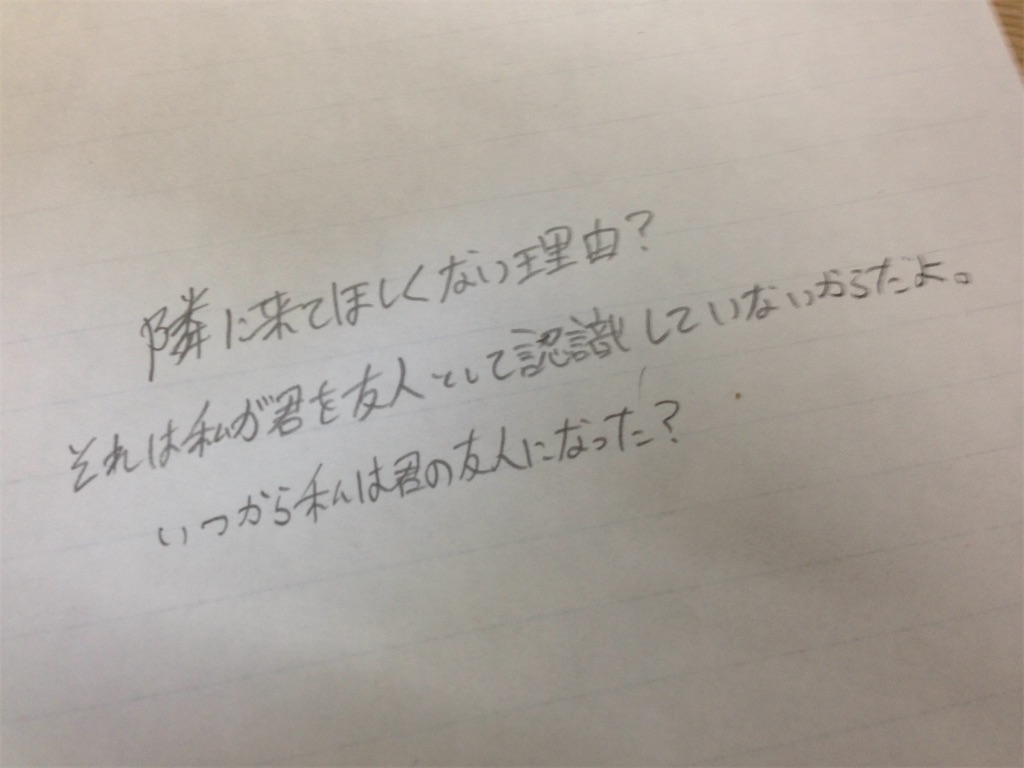 隣に来てほしくない理由？
それは私が君を友人として認識していないからだよ。
いつから私は君の友人になった？